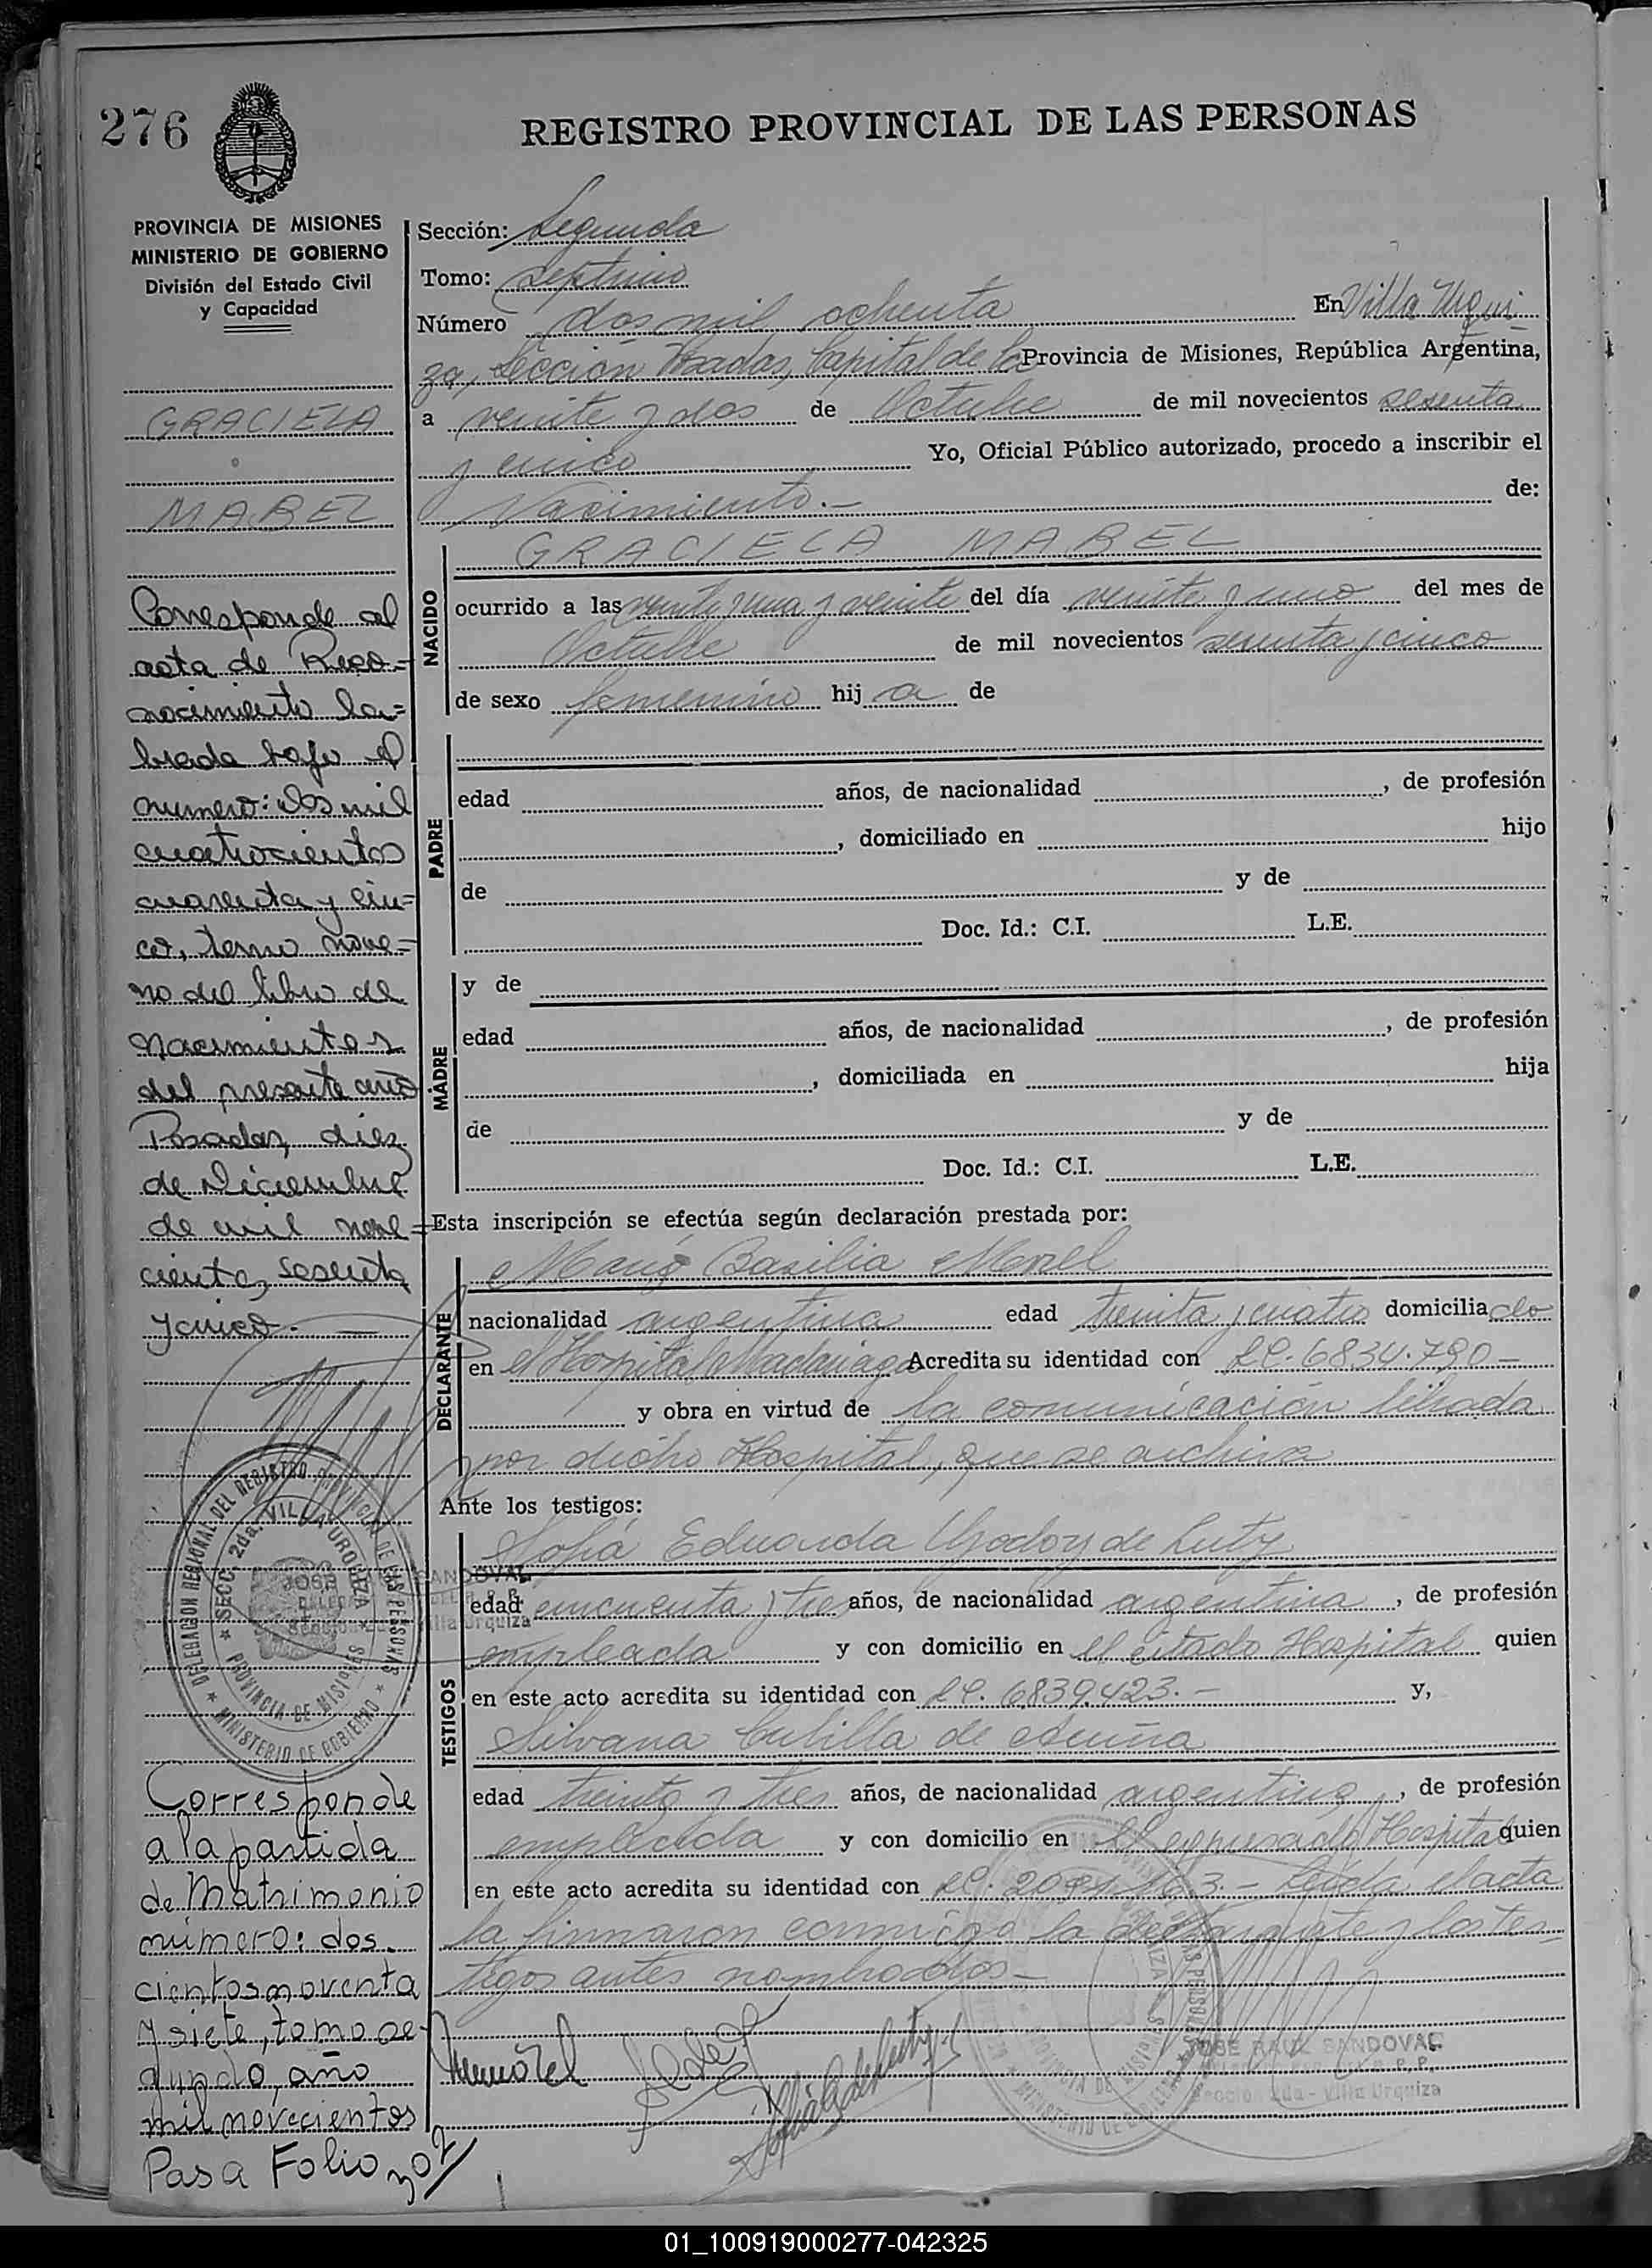 276
REGISTRO PROVINCIAL DE LAS PERSONAS
PROVINCIA DE MISIONES
MINISTERIO DE GOBIERNO
División del Estado Civil
y Capacidad
GRACIELA
MABEL
Corresponde al
acta de Reco=
nocimiento la=
brada bajo el
numero: Dos mil
cuatrocientos
cuarenta y cin=
co, tomo nove=
no del libro de
Nacimientos
del presente año
Posadas, diez
de Diciembre
de mil nove=
cientos sesenta
y cinco.-
Corresponde
a la partida
de Matrimonio
número: dos
cientos noventa
y siete, tomo se-
gundo, año
mil novecientos
Pasa Folio 302
Sección: Segunda
Tomo: septimo
Número dos mil ochenta En Villa Urqui
za, Sección Posadas, Capital de la Provincia de Misiones, República Argentina,
a veinte y dos de Octubre de mil novecientos sesenta
y cinco Yo, Oficial Público autorizado, procedo a inscribir el
Nacimiento.- de:
NACIDO
GRACIELA MABEL
ocurrido a las veinte y una y veinte del día veinte y uno del mes de
Octubre de mil novecientos sesenta y cinco
de sexo femenino hija de
PADRE
edad años, de nacionalidad , de profesión
, domiciliado en hijo
de y de
Doc. Id.: C.I. L.E.
MADRE
y de
edad años, de nacionalidad , de profesión
, domiciliada en hija
de y de
Doc. Id.: C.I. L.E.
Esta inscripción se efectúa según declaración prestada por:
DECLARANTE
Basilia Morel
nacionalidad argentina edad treinta y cuatro domicilia do
en el Hospital Madariaga Acredita su identidad con LC. 6834.790-
y obra en virtud de la comunicación librada
por dicho Hospital, que se archiva
Ante los testigos:
TESTIGOS
Sofia Eduarda Godoy de Luty
edad cincuenta y tres años, de nacionalidad argentina, de profesión
empleada y con domicilio en el citado Hospital quien
en este acto acredita su identidad con LC. 6839.423.- y,
Silvana Cubilla de Acuña
edad treinta y tres años, de nacionalidad argentina, de profesión
empleada y con domicilio en el expresado Hospital quien
en este acto acredita su identidad con LC. Leída el acta
la firmaron conmigo la declarante y los tes
tigos antes nombrados-
DELEGACION REGIONAL DEL REGISTRO PROVINCIAL DE LAS PERSONAS
SECC. 2da. VILLA URQUIZA
PROVINCIA DE MISIONES
MINISTERIO DE GOBIERNO
JOSE RAUL SANDOVAL
Sección 2da - Villa Urquiza
01_100919000277-042325